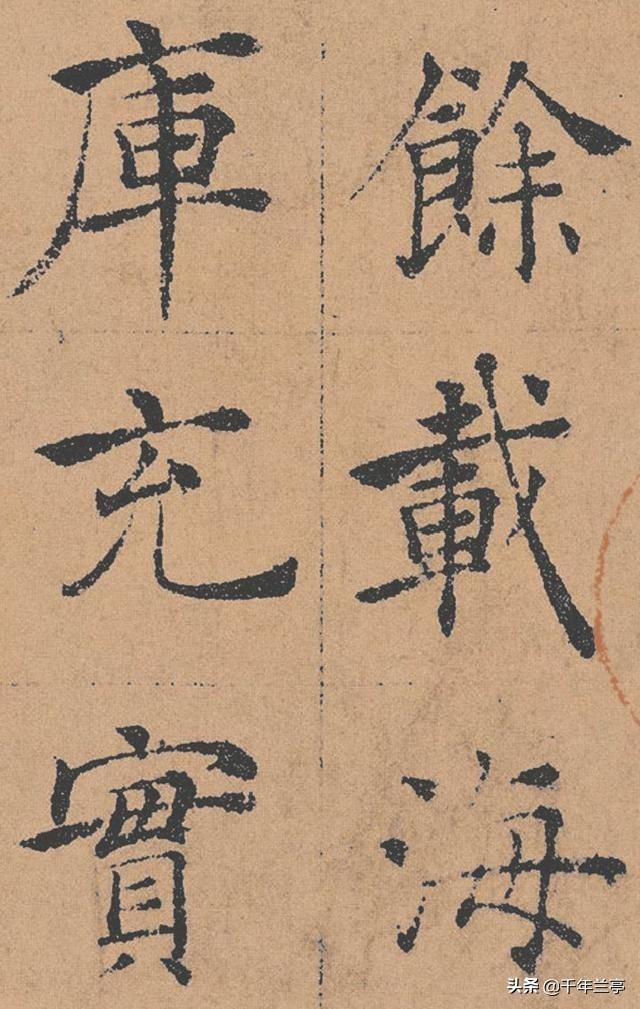 餘載海
庫充實
头条 @千年兰亭